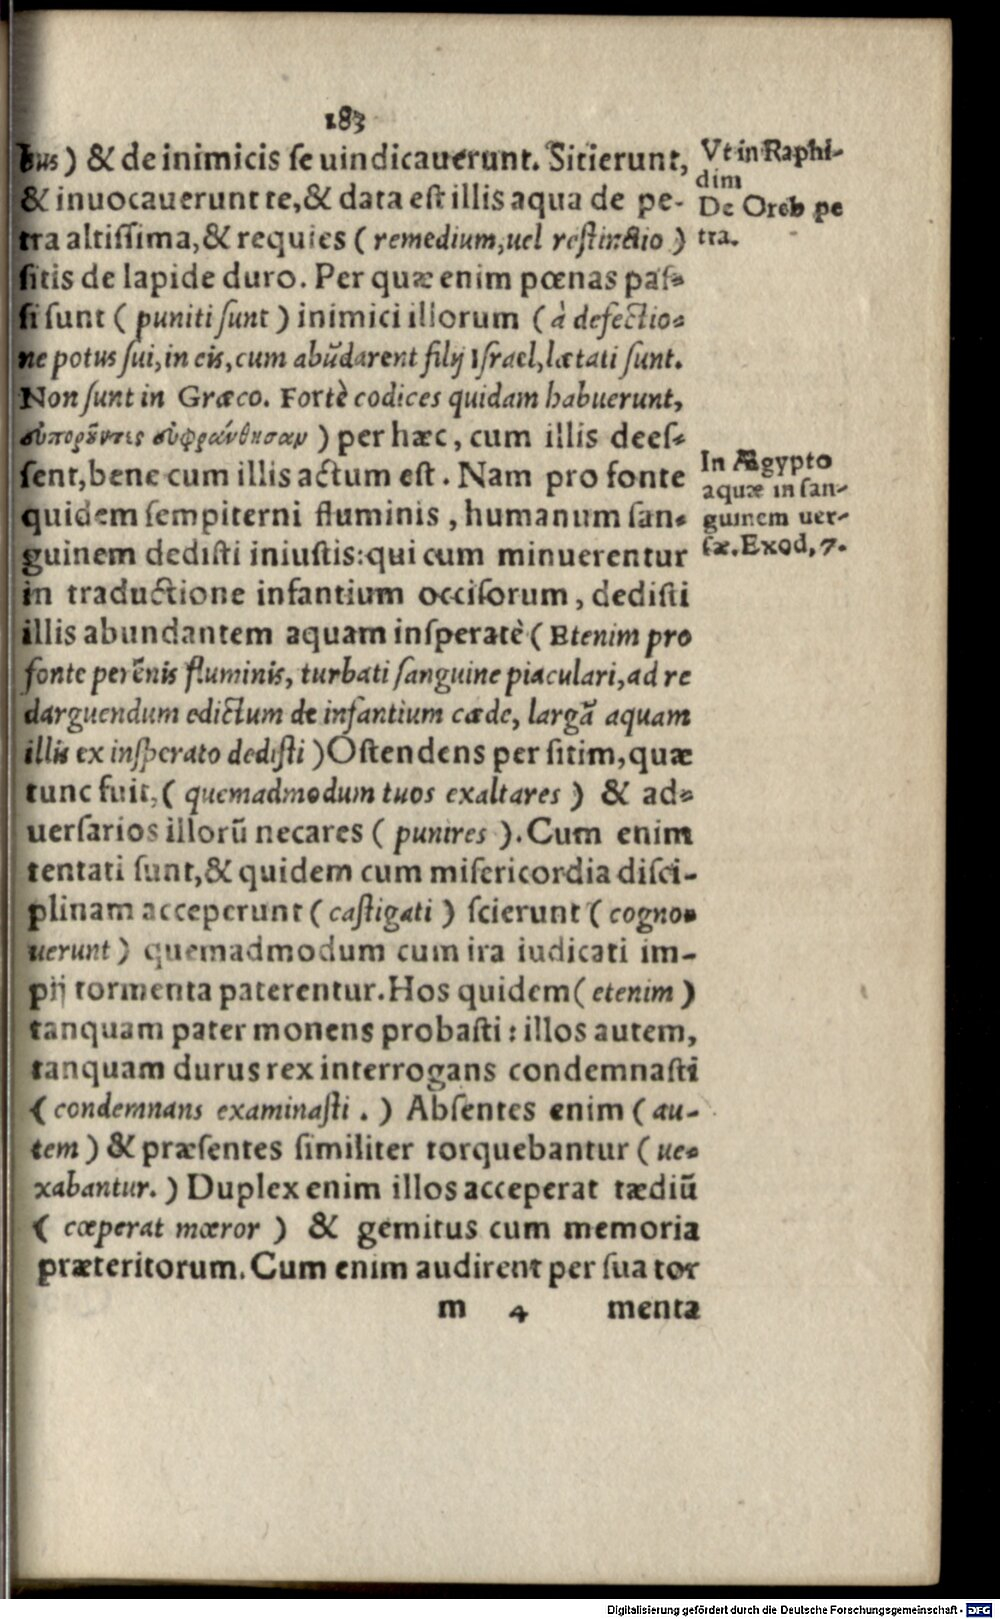 183
bus) & de inimicis se uindicauerunt. Sitierunt,
& inuocauerunt te, & data est illis aqua de pe-
tra altissima, & requies ( remedium, uel restinctio )
sitis de lapide duro. Per quæ enim pœnas pas-
si sunt ( puniti sunt ) inimici illorum ( à defectio-
ne potus sui, in eis, cum abūdarent filij Israel, lætati sunt.
Non sunt in Græco. Fortè codices quidam habuerunt,
) per hæc, cum illis dees-
sent, bene cum illis actum est. Nam pro fonte
quidem sempiterni fluminis, humanum san-
guinem dedisti iniustis: qui cum minuerentur
in traductione infantium occisorum, dedisti
illis abundantem aquam insperatè ( Etenim pro
fonte perēnis fluminis, turbati sanguine piaculari, ad re
darguendum edictum de infantium cæde, largā aquam
illis ex insperato dedisti ) Ostendens per sitim, quæ
tunc fuit, ( quemadmodum tuos exaltares ) & ad-
uersarios illorū necares ( punires ). Cum enim
tentati sunt, & quidem cum misericordia disci-
plinam acceperunt ( castigati ) scierunt ( cogno-
uerunt ) quemadmodum cum ira iudicati im-
pij tormenta paterentur. Hos quidem ( etenim )
tanquam pater monens probasti: illos autem,
tanquam durus rex interrogans condemnasti
( condemnans examinasti. ) Absentes enim ( au-
tem ) & præsentes similiter torquebantur ( ue-
xabantur. ) Duplex enim illos acceperat tædiū
( cœperat mœror ) & gemitus cum memoria
præteritorum. Cum enim audirent per sua tor
m 4 menta
Vt in Raphi-
dim
De Oreb pe
tra.
In Ægypto
aquæ in san-
guinem uer-
sæ. Exod, 7.
Digitalisierung gefördert durch die Deutsche Forschungsgemeinschaft - DFG